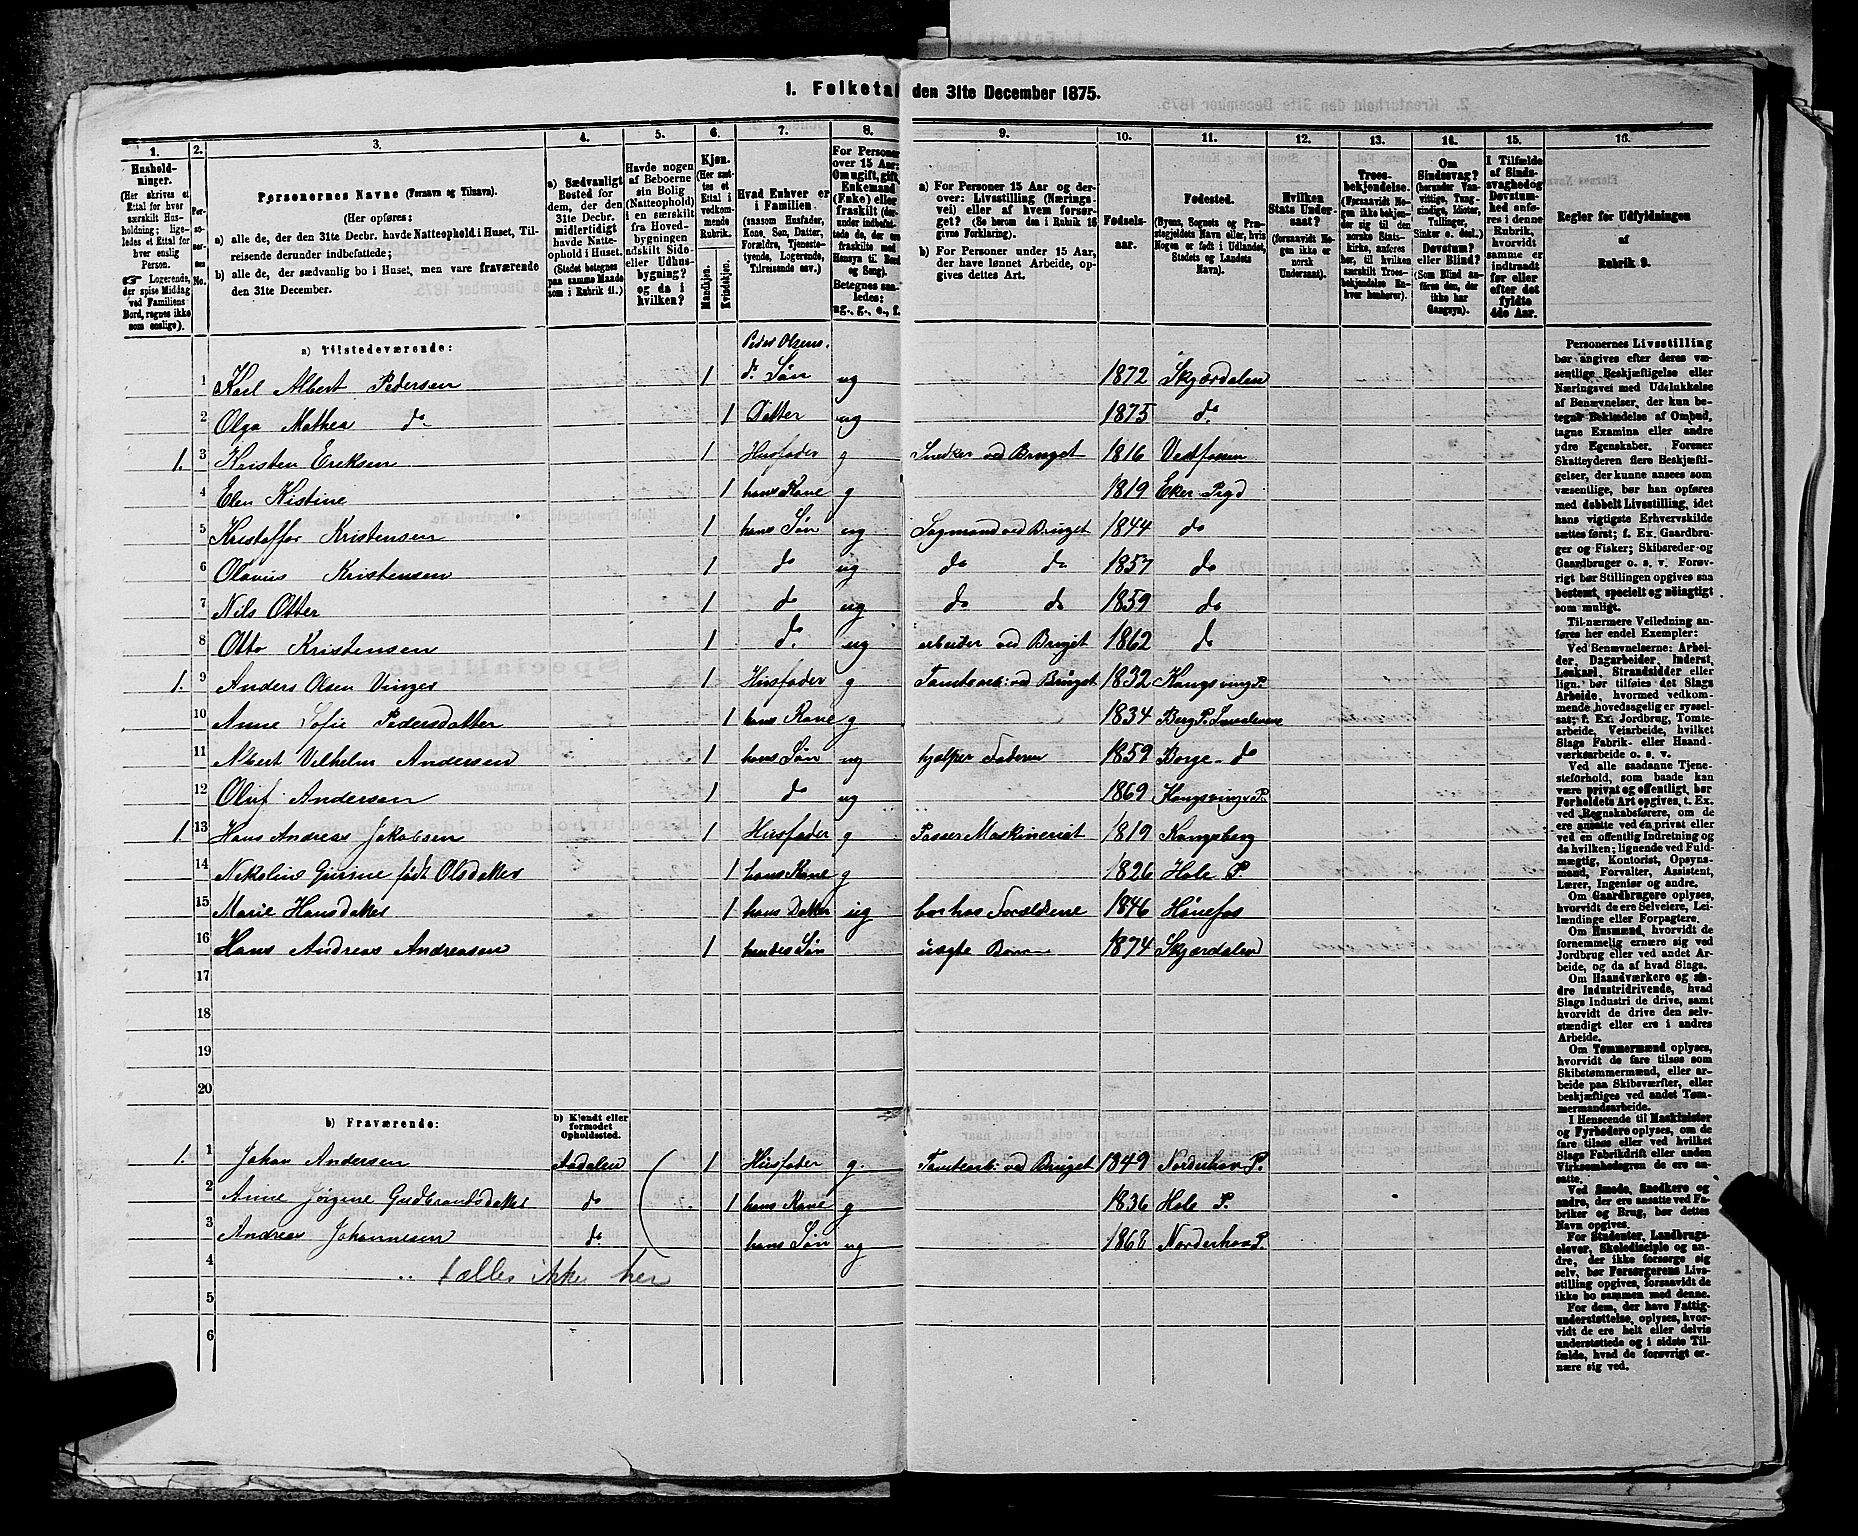 1. Folketal den 31te December 1875.
1. 2. 3. 4. 5. 6. 7. 8. 9. 10. 11. 12. 13. 14. 15. 16.
Husholdninger. (Her skrives et Ettal for hver særskilt Husholdning; ligeledes et Ettal for hver enslig Person. ☞ Logerende, der spise Middag ved Familiens Bord, regnes ikke som enslige).
Personernes No.
Personernes Navne (Fornavn og Tilnavn).
(Her opføres:
a) alle de, der den 31te Decbr. havde Natteophold i Huset, Tilreisende derunder indbefattede;
b) alle de, der sædvanlig bo i Huset, men vare fraværende den 31te December.
a) Sædvanligt Bosted for dem, der den 31te Decbr. midlertidigt havde Natteophold i Huset. (Stedet betegnes paa samme Maade som i Rubrik 11.)
Havde nogen af Beboerne sin Bolig (Natteophold) i en særskilt fra Hovedbygningen adskilt Sidebygning eller Udhusbygning? og da i hvilken?
Kjøn. (Her sættes et Ettal i vedkommende Rubrik.
Mandkjøn. Kvindekjøn.
Hvad Enhver er i Familien. (saasom Husfader, Kone, Søn, Datter, Forældre, Tjenestetyende, Logerende, Tilreisende osv.)
For Personer over 15 Aar: Om ugift, gift, Enkemand (Enke) eller fraskilt
Betegnes saaledes: ug., g., e., f.
a) For Personer 15 Aar og derover: Livsstilling (Næringsvei) eller af hvem forsørget? (Se herom den i Rubrik 16 givne Forklaring).
b) For Personer under 15 Aar, der have lønnet Arbeide, opgives dettes Art.
Fødselsaar.
Fødested. (Byens, Sognets og Præstegjeldets Navn eller, hvis Nogen er født i Udlandet, Stedets og Landets Navn).
Hvilken Stats Undersaat? (forsaavidt Nogen ikke er norsk Undersaat).
Troesbekjendelse. (Forsaavidt Nogen ikke bekjender sig til den norske Statskirke, anføres her, til hvilken særskilt Troesbekjendelse Enhver henhører).
Om Sindssvag? (herunder Vanvittige, Tungsindige, Idioter, Tullinger, Sinker o. desl.) Døvstum? eller Blind? (Som Blind anføres den, der ikke har Gangsyn).
I Tilfælde af Sindssvaghed og Døvstumhed anføres i denne Rubrik, hvorvidt samme er indtraadt før eller efter det fyldte 4de Aar.
Regler for Udfyldningen af Rubrik 9.
a) Tilstedeværende: Peder Olsens.
1 Karl Albert Pedersen 1 d. Søn ug 1872 Skjærdalen
2 Olga Mathea do 1 Datter ug 1875 do
1. 3 Kristen Eriksen 1 Husfader g Snedker ved Bruget 1816 Vestfossen
4 Elen Kistine 1 hans Kone g 1819 Eker Pgd
5 Kristoffer Kristensen 1 hans Søn ug Sagmand ved Bruget 1844 do
6 Olavus Kristensen 1 do ug do do 1857 do
7 Nils Otter 1 do ug do do 1859 do
8 Otto Kristensen 1 do ug arbeider ved Bruget 1862 do
1. 9 Anders Olsen Vinger 1 Husfader g Tomtearb. ved Bruget 1832 Kongsving P.
10 Anne Sofie Pedersdatter 1 hans Kone g 1834 Berg P.
11 Albert Vilhelm Andersen 1 hans Søn ug hjælper Faderen 1859 Borge do
12 Oluf Andersen 1 do ug 1869 Kongsving. P.
1. 13 Hans Andreas Jakobsen 1 Husfader g Passer Maskineriet 1819 Kongsberg
14 Nikoline Gurine født Olsdatter 1 hans Kone g 1826 Hole P
15 Marie Hansdatter 1 hans Datter ug bor hos Forældrene 1846 Hønefos
16 Hans Andreas Andreasen 1 hendes Søn uægte Barn 1874 Skjærdalen
17
18
19
20
b) Fraværende: b) Kjendt eller formodet Opholdssted.
1. 1 Johan Andersen Aadalen 1 Husfader g. Tomtearb. ved Bruget 1849 Norderhov P.
2 Anne Jørgine Gudbrandsdatter do 1 hans Kone g 1836 Hole P.
3 Andreas Johannesen do. hans Søn ug 1868 Norderhov P.
4 tælles ikke her
5
6
Personernes Livsstilling bør angives efter deres væsentlige Beskjæftigelse eller Næringsvei med Udelukkelse af Benævnelser, der kun betegne Beklædelse af Ombud, tagne Examina eller andre ydre Egenskaber. Forener Skatteyderen flere Beskjæftigelser, der kunne ansees som væsentlige, bør han opføres med dobbelt Livsstilling, idet hans vigtigste Erhvervskilde sættes først; f. Ex. Gaardbruger og Fisker; Skibsreder og Gaardbruger o. s. v. Forøvrigt bør Stillingen opgives saa bestemt, specielt og nøiagtigt som muligt.
Til nærmere Veiledning anføres her endel Exempler:
Ved Benævnelserne: Arbeider, Dagarbeider, Inderst, Løskarl, Strandsidder eller lign. bør tilføies det Slags Arbeide, hvormed vedkommende hovedsagelig er sysselsat; f. Ex. Jordbrug, Tomtearbeide, Veiarbeide, hvilket Slags Fabrik- eller Haandværksarbeide o. s. v.
Ved alle saadanne Tjenesteforhold, som baade kan være privat og offentligt, bør Forholdets Art opgives, t. Ex. ved Regnskabsførere, om de ere ansatte ved en privat eller ved en offentlig Indretning og da hvilken; lignende ved Fuldmægtig, Kontorist, Opsynsmand, Forvalter, Assistent, Lærer, Ingeniør og andre.
Om Gaardbrugere oplyses, hvorvidt de ere Selveiere, Leilændinge eller Forpagtere.
Om Husmænd, hvorvidt de fornemmelig ernære sig ved Jordbrug eller ved andet Arbeide, og da af hvad Slags.
Om Haandværkere og andre Industridrivende, hvad Slags Industri de drive, samt hvorvidt de drive den selvstændigt eller ere i andres Arbeide.
Om Tømmermænd oplyses, hvorvidt de fare tilsøs som Skibstømmermænd, eller arbeide paa Skibsværfter, eller beskjæftiges ved andet Tømmermandsarbeide.
I Henseende til Maskinister og Fyrbødere oplyses, om de fare tilsøs eller ved hvilket Slags Fabrikdrift eller anden Virksomhedsgren de ere ansatte.
Ved Smede, Snedkere og andre, der ere ansatte ved Fabriker og Brug, bør dettes Navn opgives.
For Studenter, Landbrugselever, Skoledisciple og andre, der ikke forsørge sig selv, bør Forsørgerens Livsstilling opgives, forsaavidt de ikke bo sammen med denne.
For dem, der have Fattigunderstøttelse, oplyses, hvorvidt de ere helt eller delvis understøttede og i sidste Tilfælde, hvad de forøvrigt ernære sig ved.